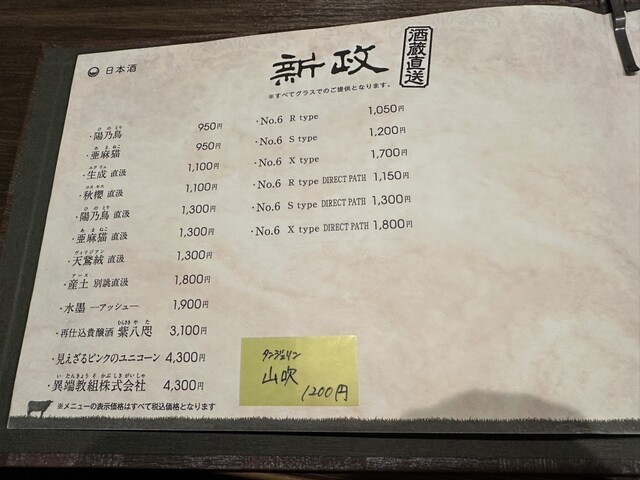 日本酒
新政
酒蔵直送
※すべてグラスでのご提供となります。
ひのとり
・陽乃鳥 950円
あまねこ
・亜麻猫 950円
エクリュ
・生成 直汲 1,100円
コスモス
・秋櫻 直汲 1,100円
ひのとり
・陽乃鳥 直汲 1,300円
あまねこ
・亜麻猫 直汲 1,300円
ヴィリジアン
・天鵞絨 直汲 1,300円
アース
・産土 別誂直汲 1,800円
・水墨 ―アッシュ― 1,900円
むらさきやた
・再仕込貴醸酒 紫八咫 3,100円
・見えざるピンクのユニコーン 4,300円
いたんきょうそかぶしきがいしゃ
・異端教組株式会社 4,300円
※メニューの表示価格はすべて税込価格となります
・No.6 R type 1,050円
・No.6 S type 1,200円
・No.6 X type 1,700円
・No.6 R type DIRECT PATH 1,150円
・No.6 S type DIRECT PATH 1,300円
・No.6 X type DIRECT PATH 1,800円
タンジェリン
山吹
1200円